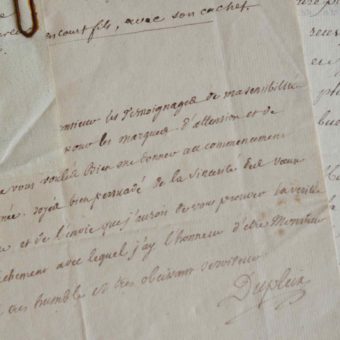 encourt fils, avec son cachet,
monsieur les Temoignages de ma sensibilité
pour les marques d'attention et de
vous voulés bien me donner au commencement
née. soyés bien persuadé de la sincerité des vœux
et de l'envie que j'aurois de vous prouver la verité
chement avec lequel j'ay l'honneur d'etre Monsieur
tres humble et tres obeissant serviteur
Dupleix